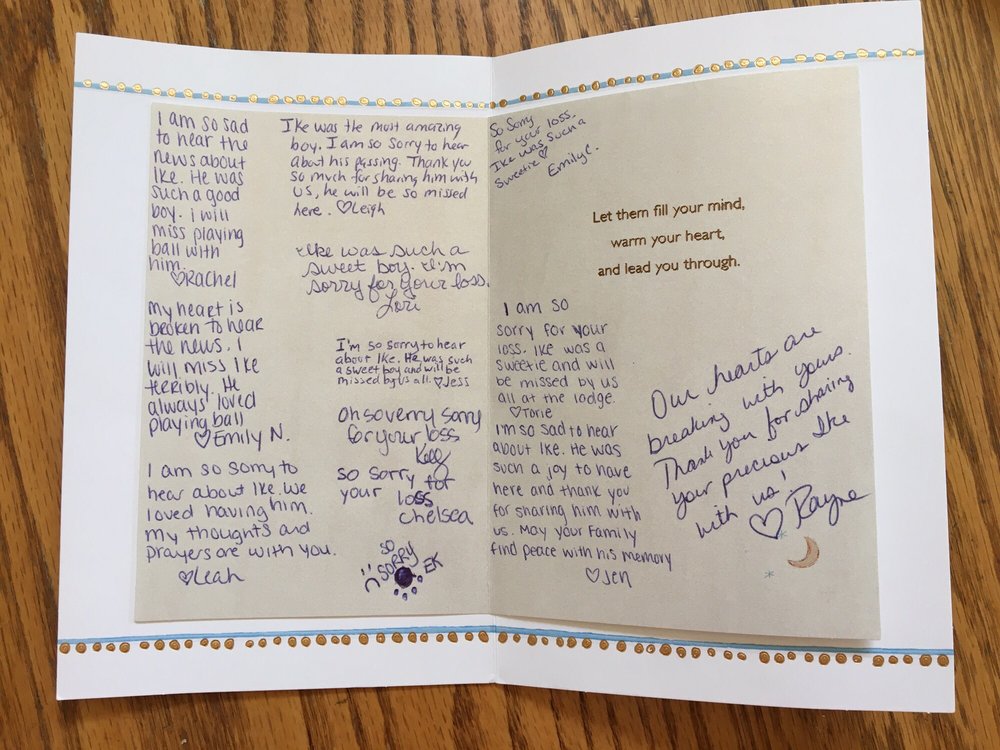 I am so sad
to hear the
news about
Ike. He was
such a good
boy. i will
miss playing
ball with
him.
♡Rachel
my heart is
broken to hear
the news. I
will miss Ike
terribly. He
always loved
playing ball
♡Emily N.
I am so sorry to
hear about Ike. We
loved having him.
my thoughts and
prayers are with you.
♡Leah
Ike was the most amazing
boy. I am so sorry to hear
about his passing. Thank you
so much for sharing him with
us, he will be so missed
here. ♡Leigh
Ike was such a
sweet boy. I'm
sorry for your loss.
Lori
I'm so sorry to hear
about Ike. He was such
a sweet boy and will be
missed by us all. ♡Jess
Oh so verry sorry
for your loss
Kelly
so sorry for
your loss
Chelsea
SO
SORRY
EK
So Sorry
for your loss.
Ike was such a
sweetie ♡
Emily C.
Let them fill your mind,
warm your heart,
and lead you through.
I am so
sorry for your
loss. Ike was a
sweetie and will
be missed by us
all at the lodge.
♡Torie
I'm so sad to hear
about Ike. He was
such a joy to have
here and thank you
for sharing him with
us. May your family
find peace with his memory
♡Jen
Our hearts are
breaking with yours.
Thank you for sharing
your precious Ike
with us!
♡ Rayne